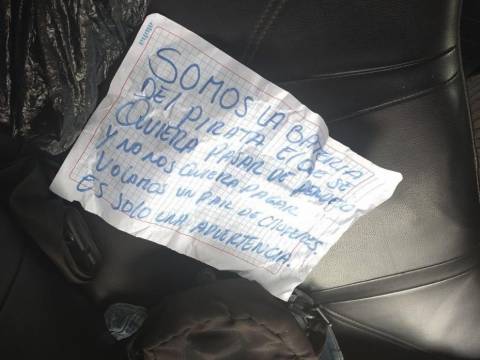 SOMOS LA BATERIA
DEL PIRATA EL QE SE
QUIERA PASAR DE
Y NO NOS QUIERA PAGAR
VOLAMOS UN PAR DE CHOFERES.
ES SOLO UNA ADVERTENCIA.